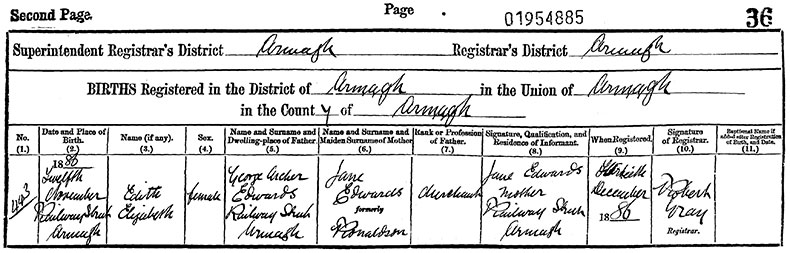 Second Page.
Page
01954885
36
Superintendent Registrar's District Armagh Registrar's District Armagh
BIRTHS Registered in the District of Armagh in the Union of Armagh
in the County of Armagh
No. (1.)
Date and Place of Birth. (2.)
Name (if any). (3.)
Sex. (4.)
Name and Surname and Dwelling-place of Father. (5.)
Name and Surname and Maiden Surname of Mother (6.)
Rank or Profession of Father. (7.)
Signature, Qualification, and Residence of Informant. (8.)
When Registered. (9.)
Signature of Registrar. (10.)
Baptismal Name if added after Registration of Birth, and Date. (11.)
443
1886
Twelfth
November
Railway Street
Armagh
Edith
Elizabeth
female
George
Edwards
Railway Street
Armagh
Jane
Edwards
formerly
Ronaldson
Merchant
Jane Edwards
Mother
Railway Street
Armagh
December
1886
Robert
Gray
Registrar.